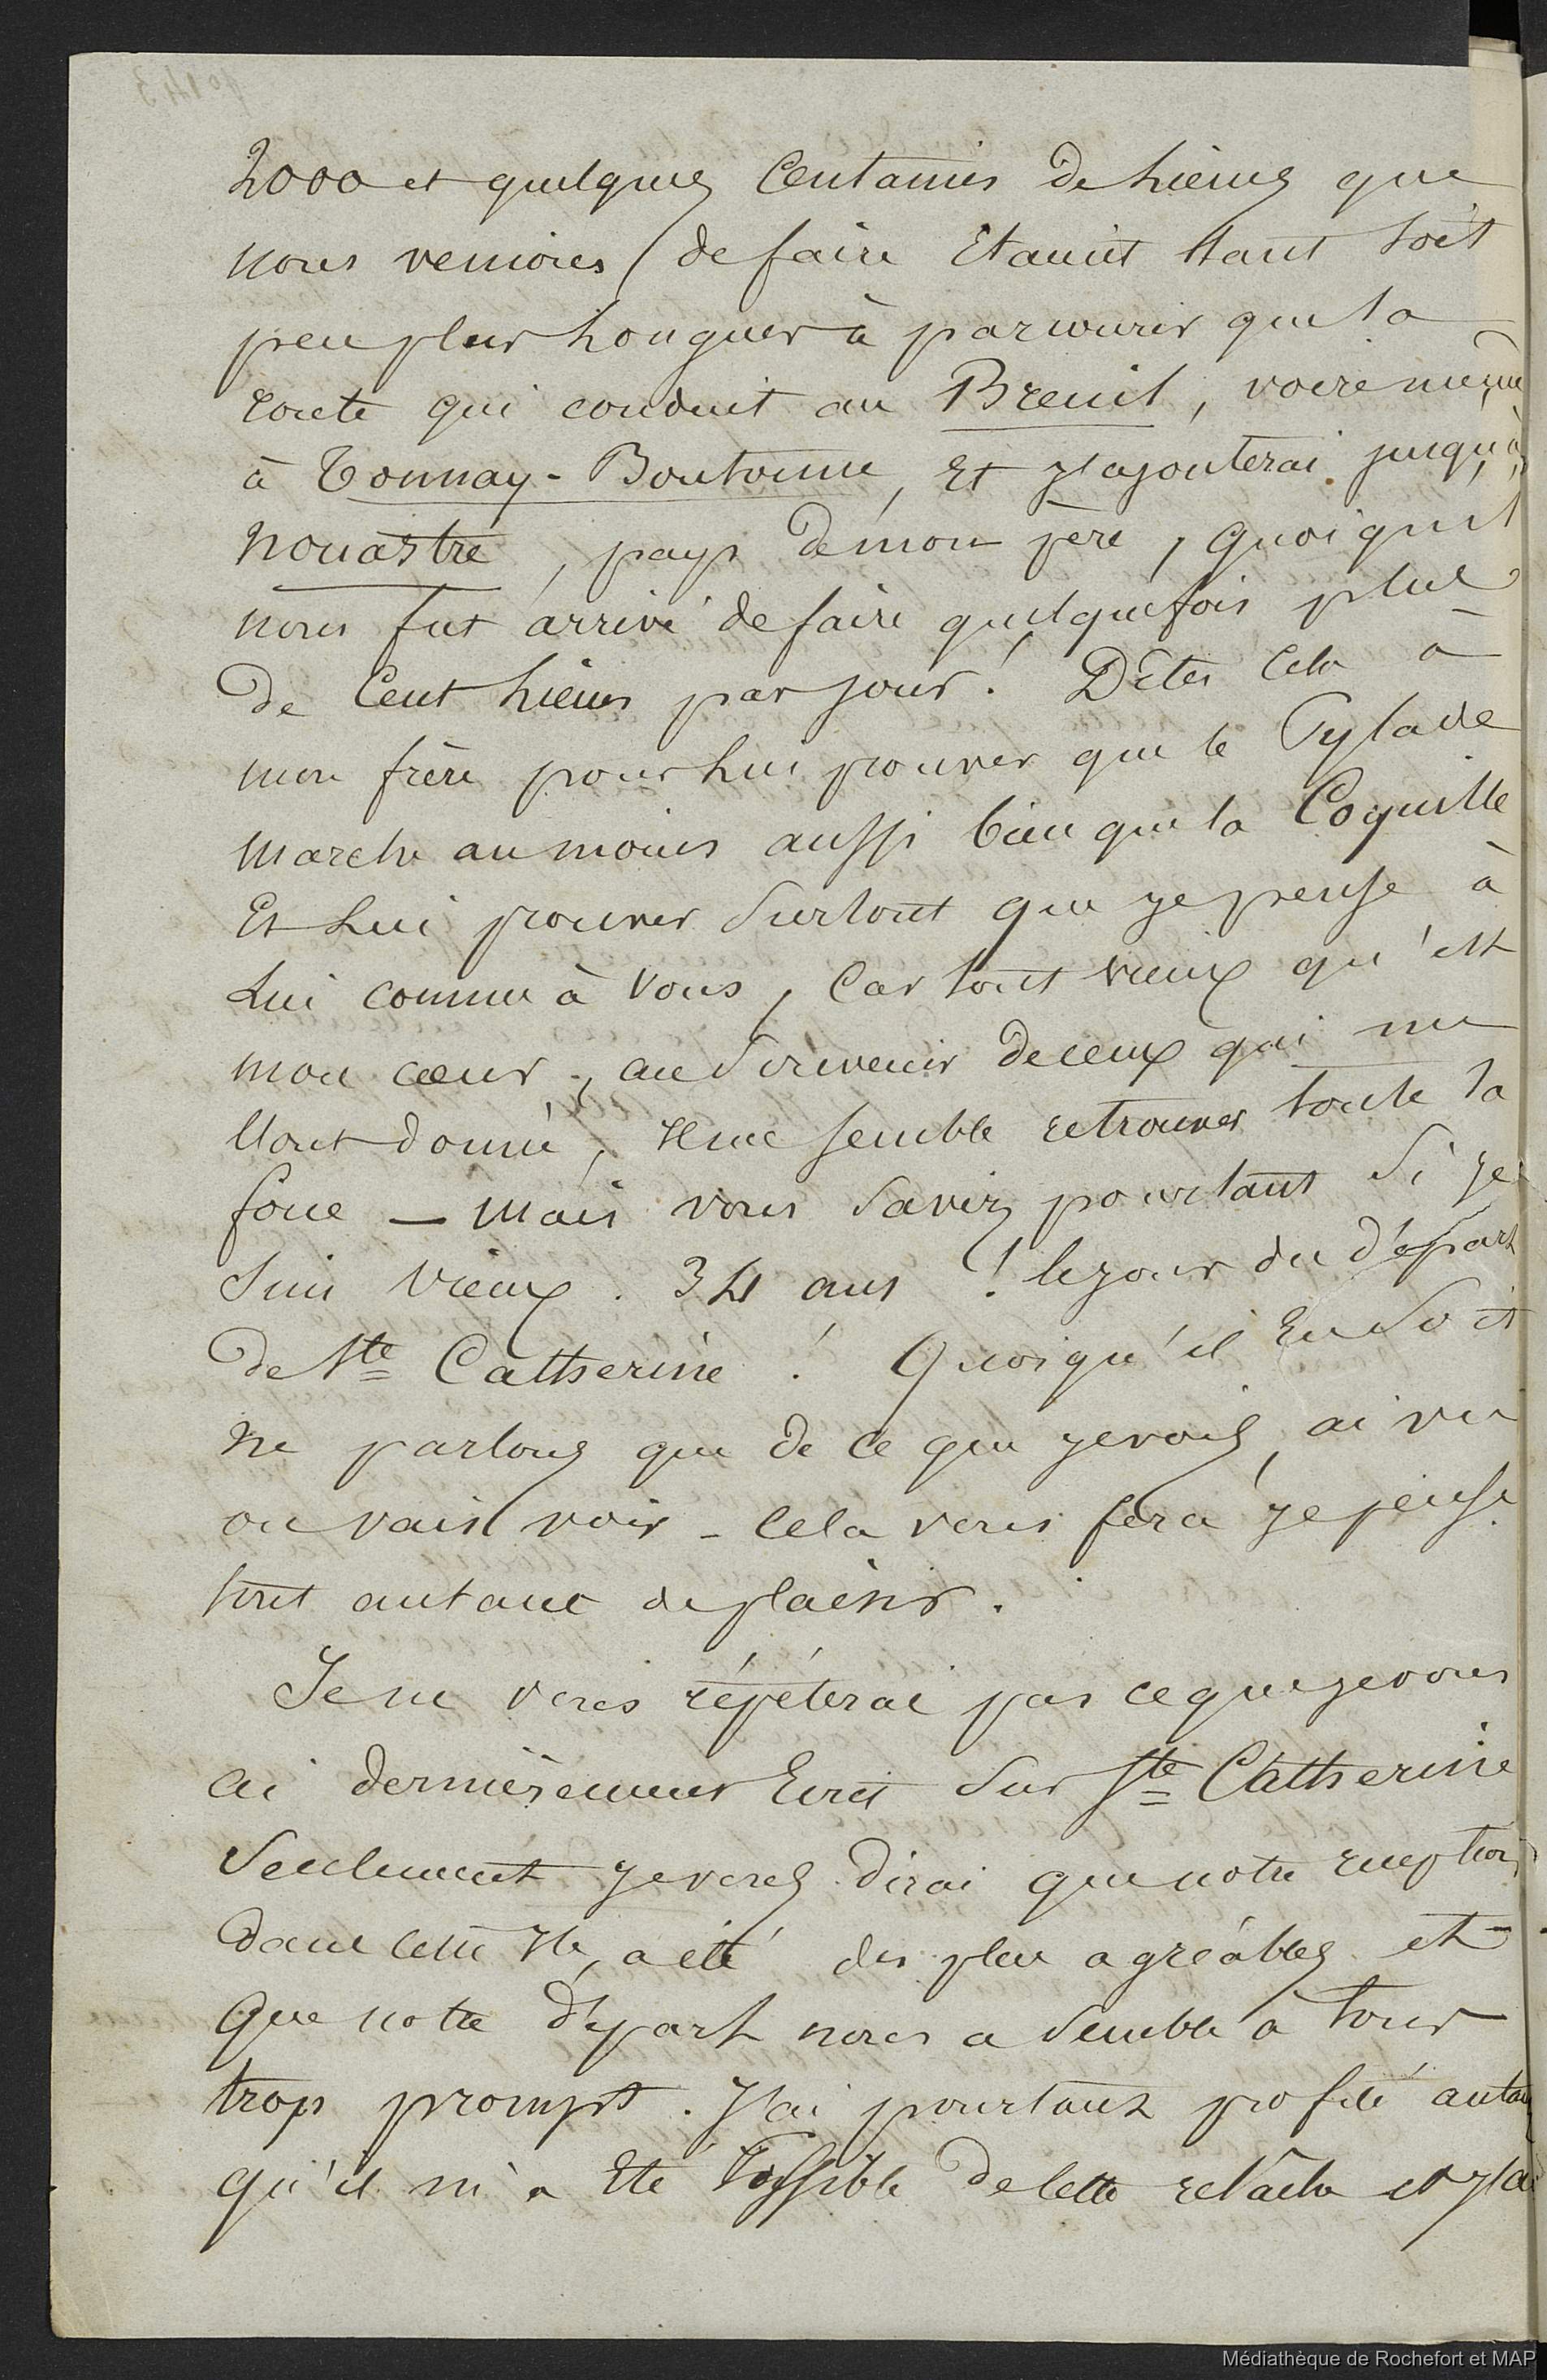 2000 et quelques Centaines de Lieues que
nous venions de faire Etaient tant soit
peu plus Longues à parcourir que la
route qui conduit au Breuil, voire même
à Tonnay-Boutonne, Et j'ajouterai jusqu'à
Nouastre, pays de mon père, quoiqu'il
nous fut arrivé de faire quelquefois plus
de Cent Lieues par jour! Dites Cela à
mon frère pour Lui prouver que le Pylade
marche au moins aussi bien que la Coquille
Et Lui prouver Surtout que je pense à
Lui comme à Vous, Car tout vieux qu'est
mon cœur, au Souvenir de ceux qui me
l'ont donné, Il me semble retrouver toute la
foue — mais vous Savez pourtant Si je
Suis Vieux. 34 ans! le jour du départ
de Ste Catherine! Quoiqu'il En Soit
ne parlons que de ce que je vois, ai vu
ou vais voir - Cela vous fera je pense
tout autant de plaisir.
Je ne vous répéterai pas ce que je vous
ai dernièrement Ecrit Sur Ste Catherine
Seulement je vous dirai que notre reception
dans cette Ile, a été des plus agréables et
que notre départ nous a Semblé à tous
trop prompt. J'ai pourtant profité autant
qu'il m'a Eté Possible de Cette relâche et j'ai
Médiathèque de Rochefort et MAP